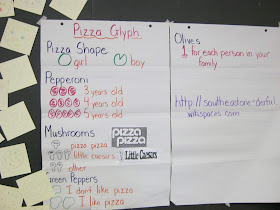 Pizza Glyph
Pizza Shape
girl boy
Pepperoni
3 years old
4 years old
5 years old
Mushrooms
pizza pizza
pizza pizza
little caesars Little Caesars
other
reen Peppers
I don't like pizza
I like pizza
Olives
1 for each person in your
family
wikispaces.com